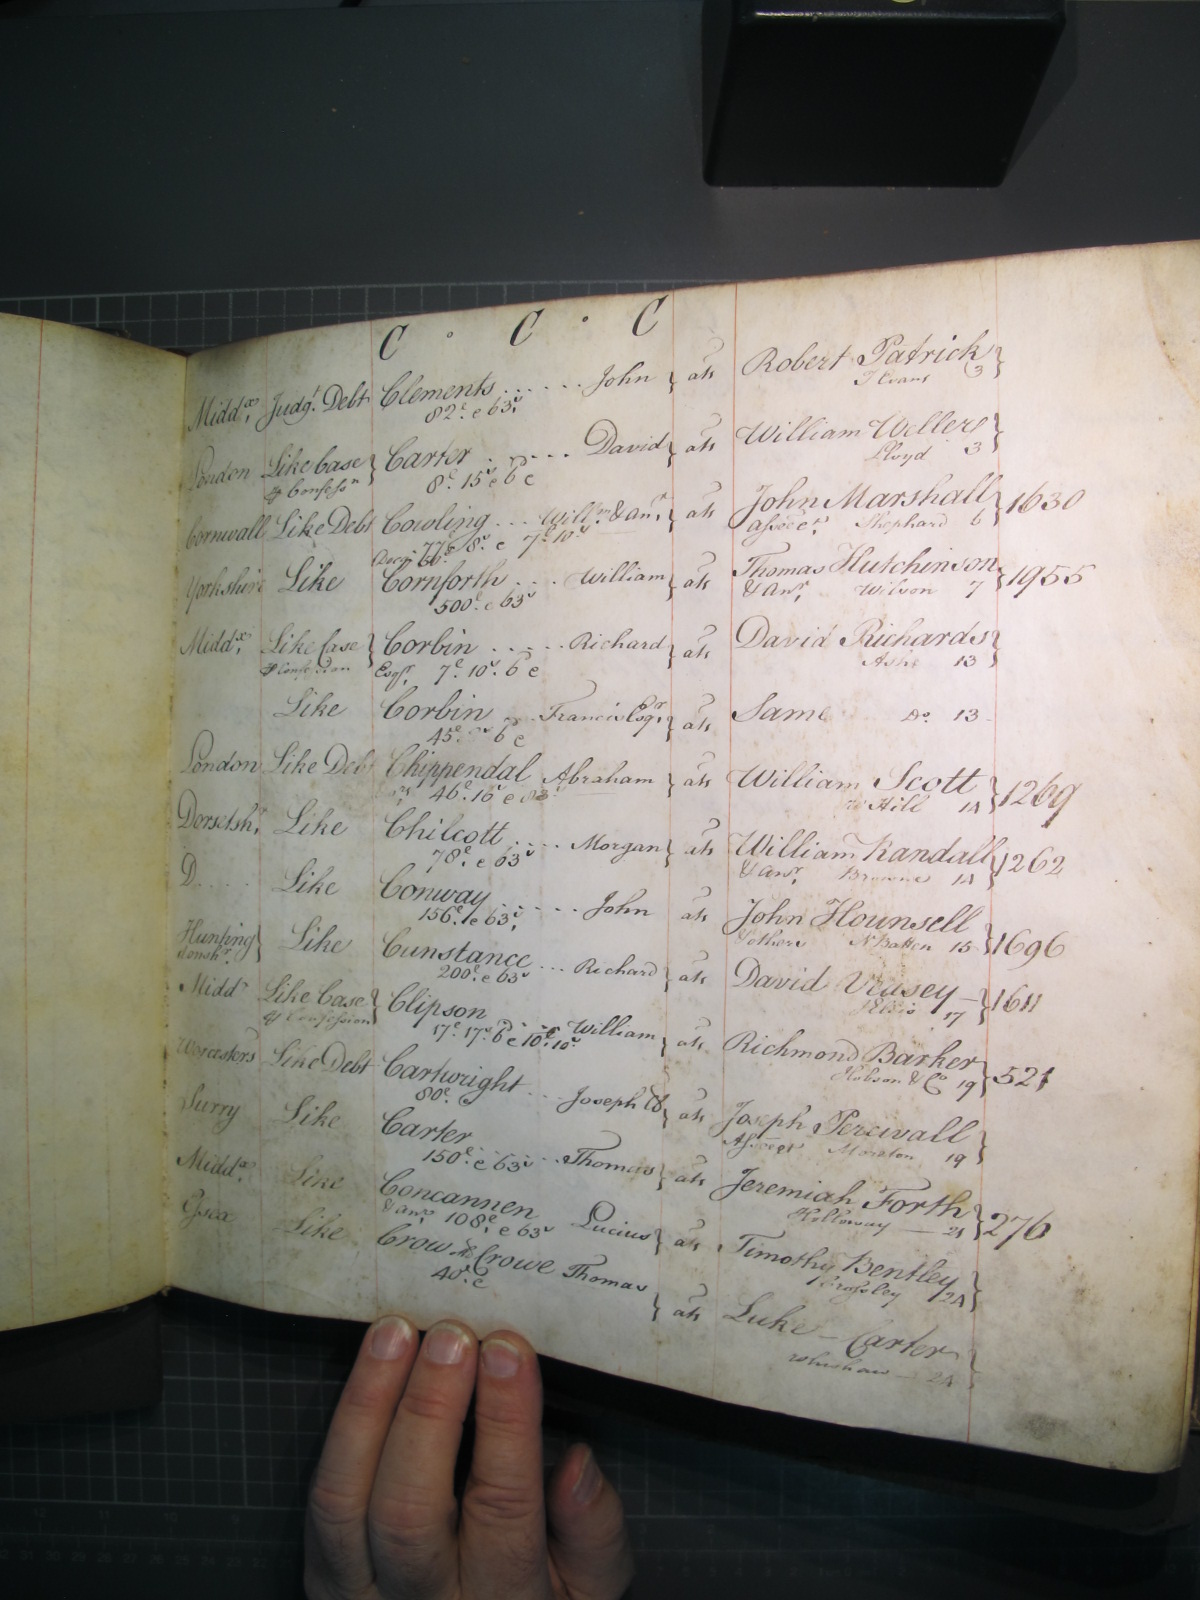 C . C . C
Midd.x Judg.t Debt Clements ...... John } ats Robert Patrick }
82.£ e 63.s T Evans 3
London Like Case } Carter ..... David } ats William Weller }
& Confess.n 8.£ 15.s 6 e Lloyd 3
Cornwall Like Debt Cowling ... Will.m & an.r ats John Marshall } 1630
77£ 8.s e 7.£ 10.s assee er. Shephard 6
Yorkshire Like Cornforth .... William } ats Thomas Hutchinson } 1955
500.£ e 63s & An.r Wilson 7
Midd.x Like Case } Corbin ..... Richard } ats David Richards }
& Confession Esq.r 7.£ 10.s 6 e Ashe 13
Like Corbin ... Francis Esq.r } ats Same D.o 13
45.£ 6 e
London Like Debt Chippendal Abraham } ats William Scott } 1269
46.£ 16.s e W Hill 14
Dorsetsh.r Like Chilcott .... Morgan } ats William Randall } 1262
78.£ e 63s & an.r Browne 14
D.... Like Conway ..... John ats John Hounsell } 1696
156.£ e 63.s & others N Batten 15
Hunting } Like Cunstance ... Richard } ats David Veasey } 1611
donsh.r 200.£ e 63s Ellis 17
Midd.x Like Case } Clipson .... William } ats Richmond Barker } 521
& Confession 17.£ 17.s 6 e 10.£ 10s Hobson & Co 19
Worcesters Like Debt Cartwright ... Joseph } ats Joseph Percivall }
80.£ Assee er Morston 19
Surry Like Carter .... Thomas } ats Jeremiah Forth } 276
150.£ e 63s Holloway 21
Midd.x Like Concannen Lucius } ats Timothy Bentley }
& an.r 108.£ e 63s Crossley 24
Essex Like Crow als Crowe Thomas } ats Luke Carter }
40.£ e Winshaw 24